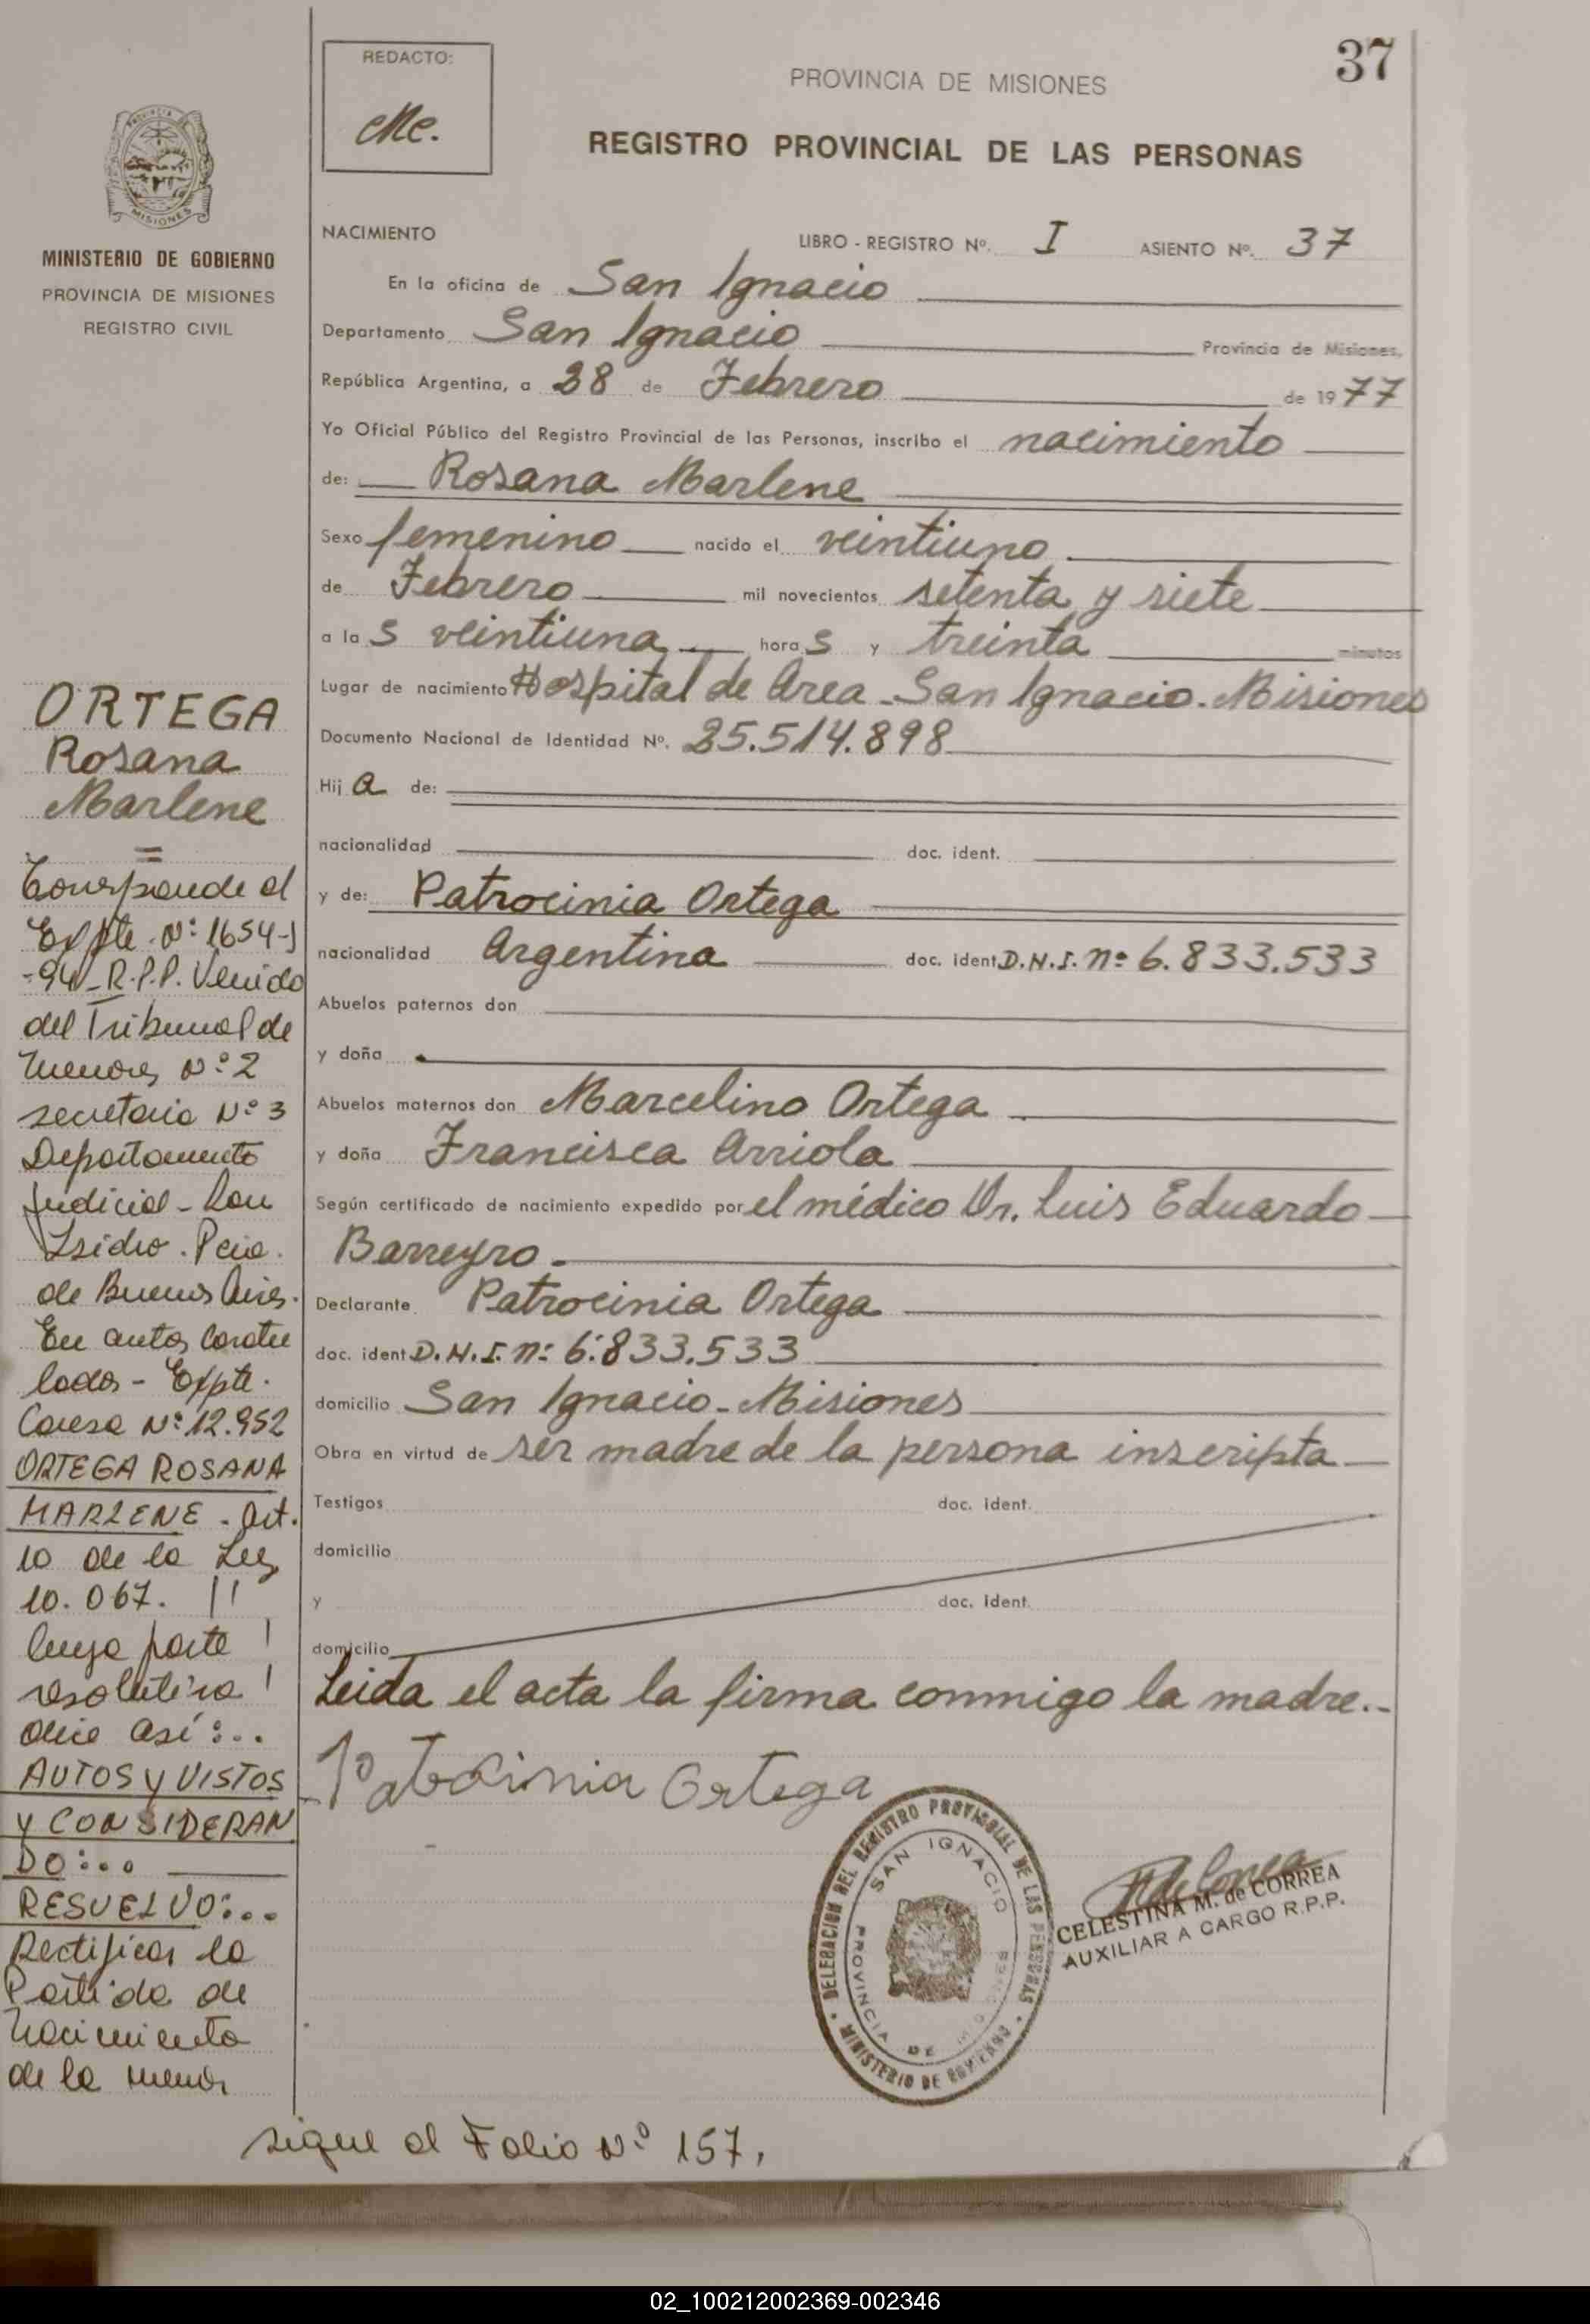 37
REDACTO:
Mc.
PROVINCIA DE MISIONES
REGISTRO PROVINCIAL DE LAS PERSONAS
MISIONES
MINISTERIO DE GOBIERNO
PROVINCIA DE MISIONES
REGISTRO CIVIL
NACIMIENTO LIBRO - REGISTRO Nº. I ASIENTO Nº. 37
En la oficina de San Ignacio
Departamento San Ignacio Provincia de Misiones,
República Argentina, a 28 de Febrero de 1977
Yo Oficial Público del Registro Provincial de las Personas, inscribo el nacimiento
de: Rosana Marlene
Sexo femenino nacido el veintiuno
de Febrero mil novecientos setenta y siete
a las veintiuna horas y treinta minutos
Lugar de nacimiento Hospital de Area - San Ignacio - Misiones
Documento Nacional de Identidad Nº. 25.514.898
Hija de:
nacionalidad doc. ident.
y de: Patrocinia Ortega
nacionalidad Argentina doc. ident. D.N.I. nº 6.833.533
Abuelos paternos don
y doña
Abuelos maternos don Marcelino Ortega
y doña Francisca Arriola
Según certificado de nacimiento expedido por el médico Dr. Luis Eduardo
Barreyro -
Declarante Patrocinia Ortega
doc. ident D.N.I. nº 6.833.533
domicilio San Ignacio - Misiones
Obra en virtud de ser madre de la persona inscripta
Testigos doc. ident.
domicilio
y doc. ident.
domicilio
Leida el acta la firma conmigo la madre.-
Patrocinia Ortega
DELEGACION DEL REGISTRO PROVINCIAL DE LAS PERSONAS
MINISTERIO DE GOBIERNO
SAN IGNACIO
PROVINCIA DE MISIONES
CELESTINA M. de CORREA
AUXILIAR A CARGO R.P.P.
ORTEGA
Rosana
Marlene
=
Corresponde al
Expte. Nº: 1654-J
-94- R.P.P. Venido
del Tribunal de
Menores Nº: 2
secretaria Nº 3
Departamento
Judicial - San
Isidro. Pcia.
de Buenos Aires.
En autos caratu
lados - Expte.
Causa Nº: 12.952
ORTEGA ROSANA
MARLENE - Art.
10 de la Ley
10.067. !!
Cuya parte !
resolutiva !
dice así:..
AUTOS y VISTOS
y CONSIDERAN
DO:...
RESUELVO:...
Rectificar la
Partida de
Nacimiento
de la menor
sigue al Folio Nº 157.
02_100212002369-002346